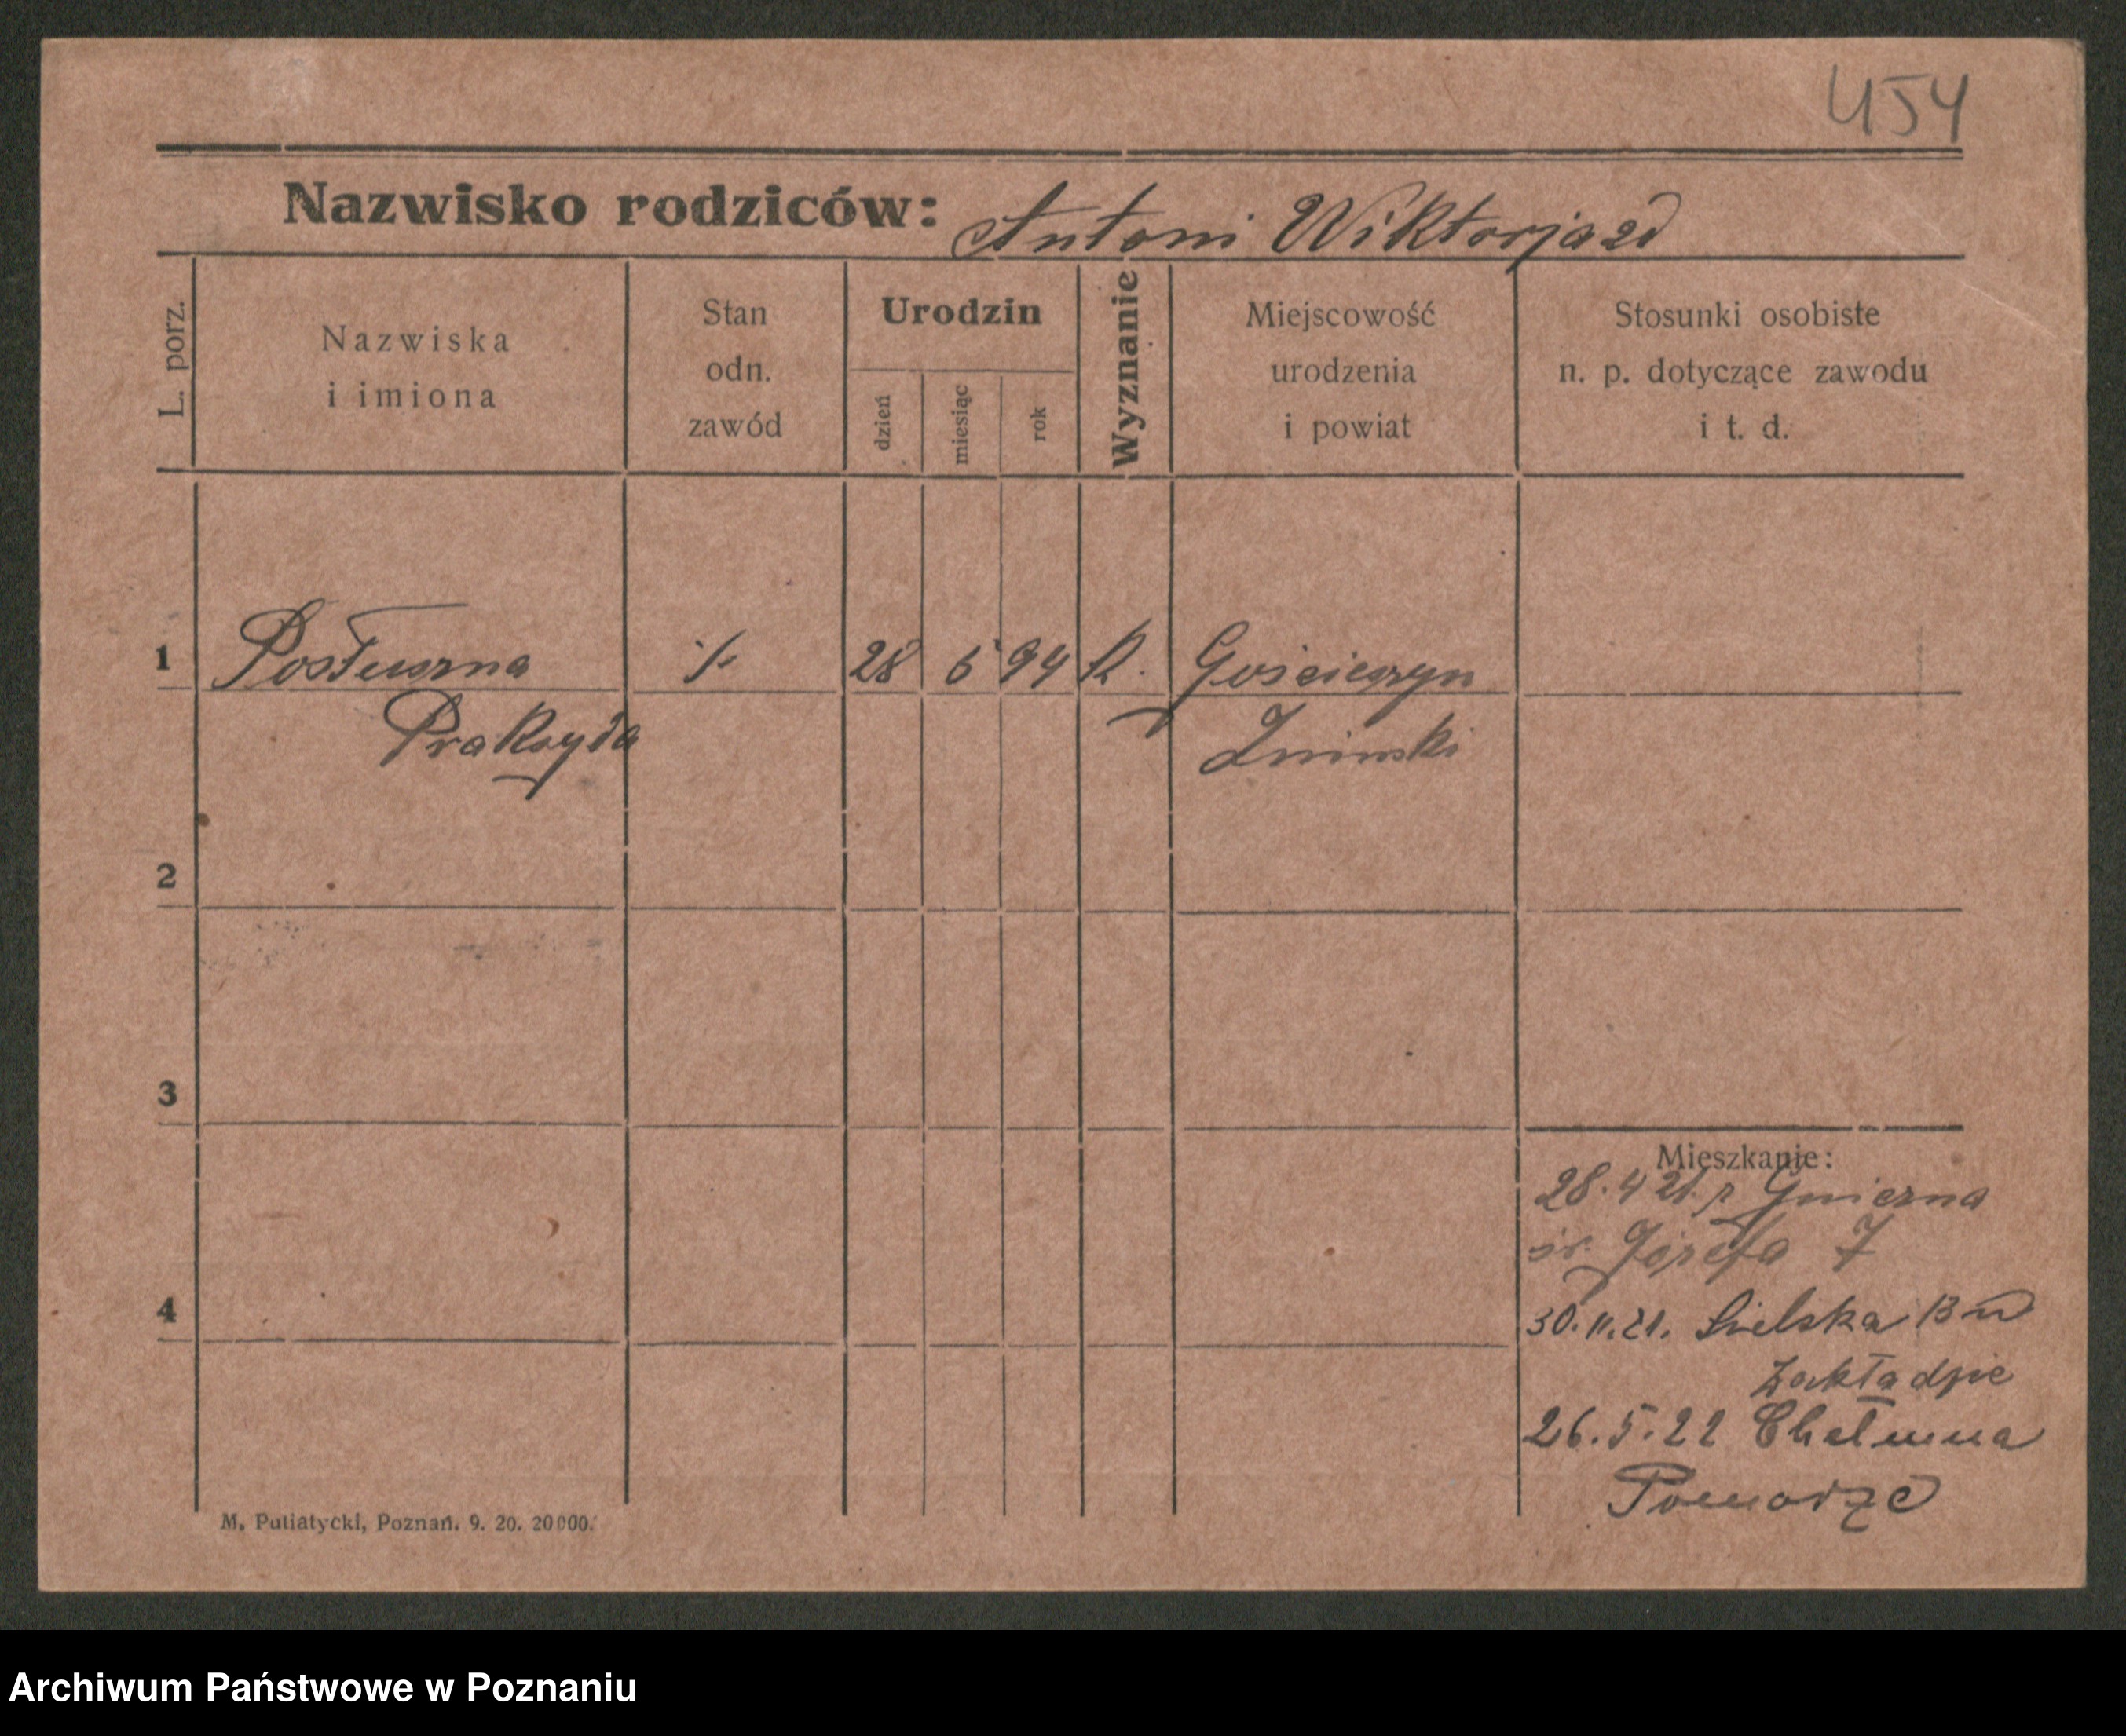 454
Nazwisko rodziców: Antoni Wiktorja zd
L. porz.
Nazwiska
i imiona
Stan
odn.
zawód
Urodzin
dzień
miesiąc
rok
Wyznanie
Miejscowość
urodzenia
i powiat
Stosunki osobiste
n. p. dotyczące zawodu
i t. d.
1 Posłuszna ./. 28 5 94 k. Gościeszyn
Praksyda Żninski
2
3
4
Mieszkanie:
28.4 21. z Gniezna
św. Józefa 7
30.11.21. Sielska 13 w
Zakładzie
26.5.22 Chełmna
Pomorze
M. Putiatycki, Poznań. 9. 20. 20000.
Archiwum Państwowe w Poznaniu